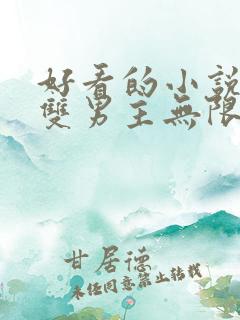 好看的小說
雙男主無限
甘居德
未经同意禁止转载